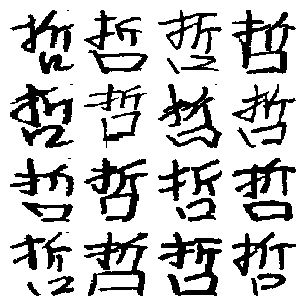 哲哲哲哲
哲哲哲哲
哲哲哲哲
哲哲哲哲